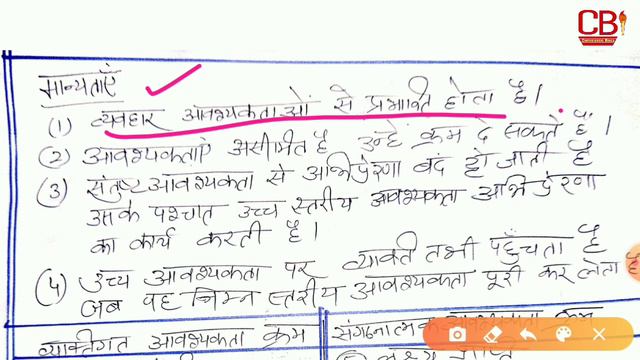 CB
मान्यताएँ
(1) व्यवहार आवश्यकताओं से प्रभावित होता है।
(2) आवश्यकताएं असीमीत है उन्हें क्रम दे सकते हैं।
(3) संतुष्ट आवश्यकता से अभिप्रेरणा बंद हो जाती है
उसके पश्चात उच्च स्तरीय आवश्यकता अभिप्रेरणा
का कार्य करती है।
(4) उच्च आवश्यकता पर व्यक्ति तभी पहुँचता है
जब वह निम्न स्तरीय आवश्यकता पूरी कर लेता है
व्यक्तिगत आवश्यकता क्रम